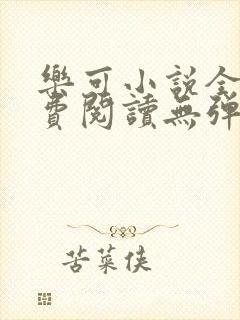 樂可小說全
費閱讀無彈
苦菜俠